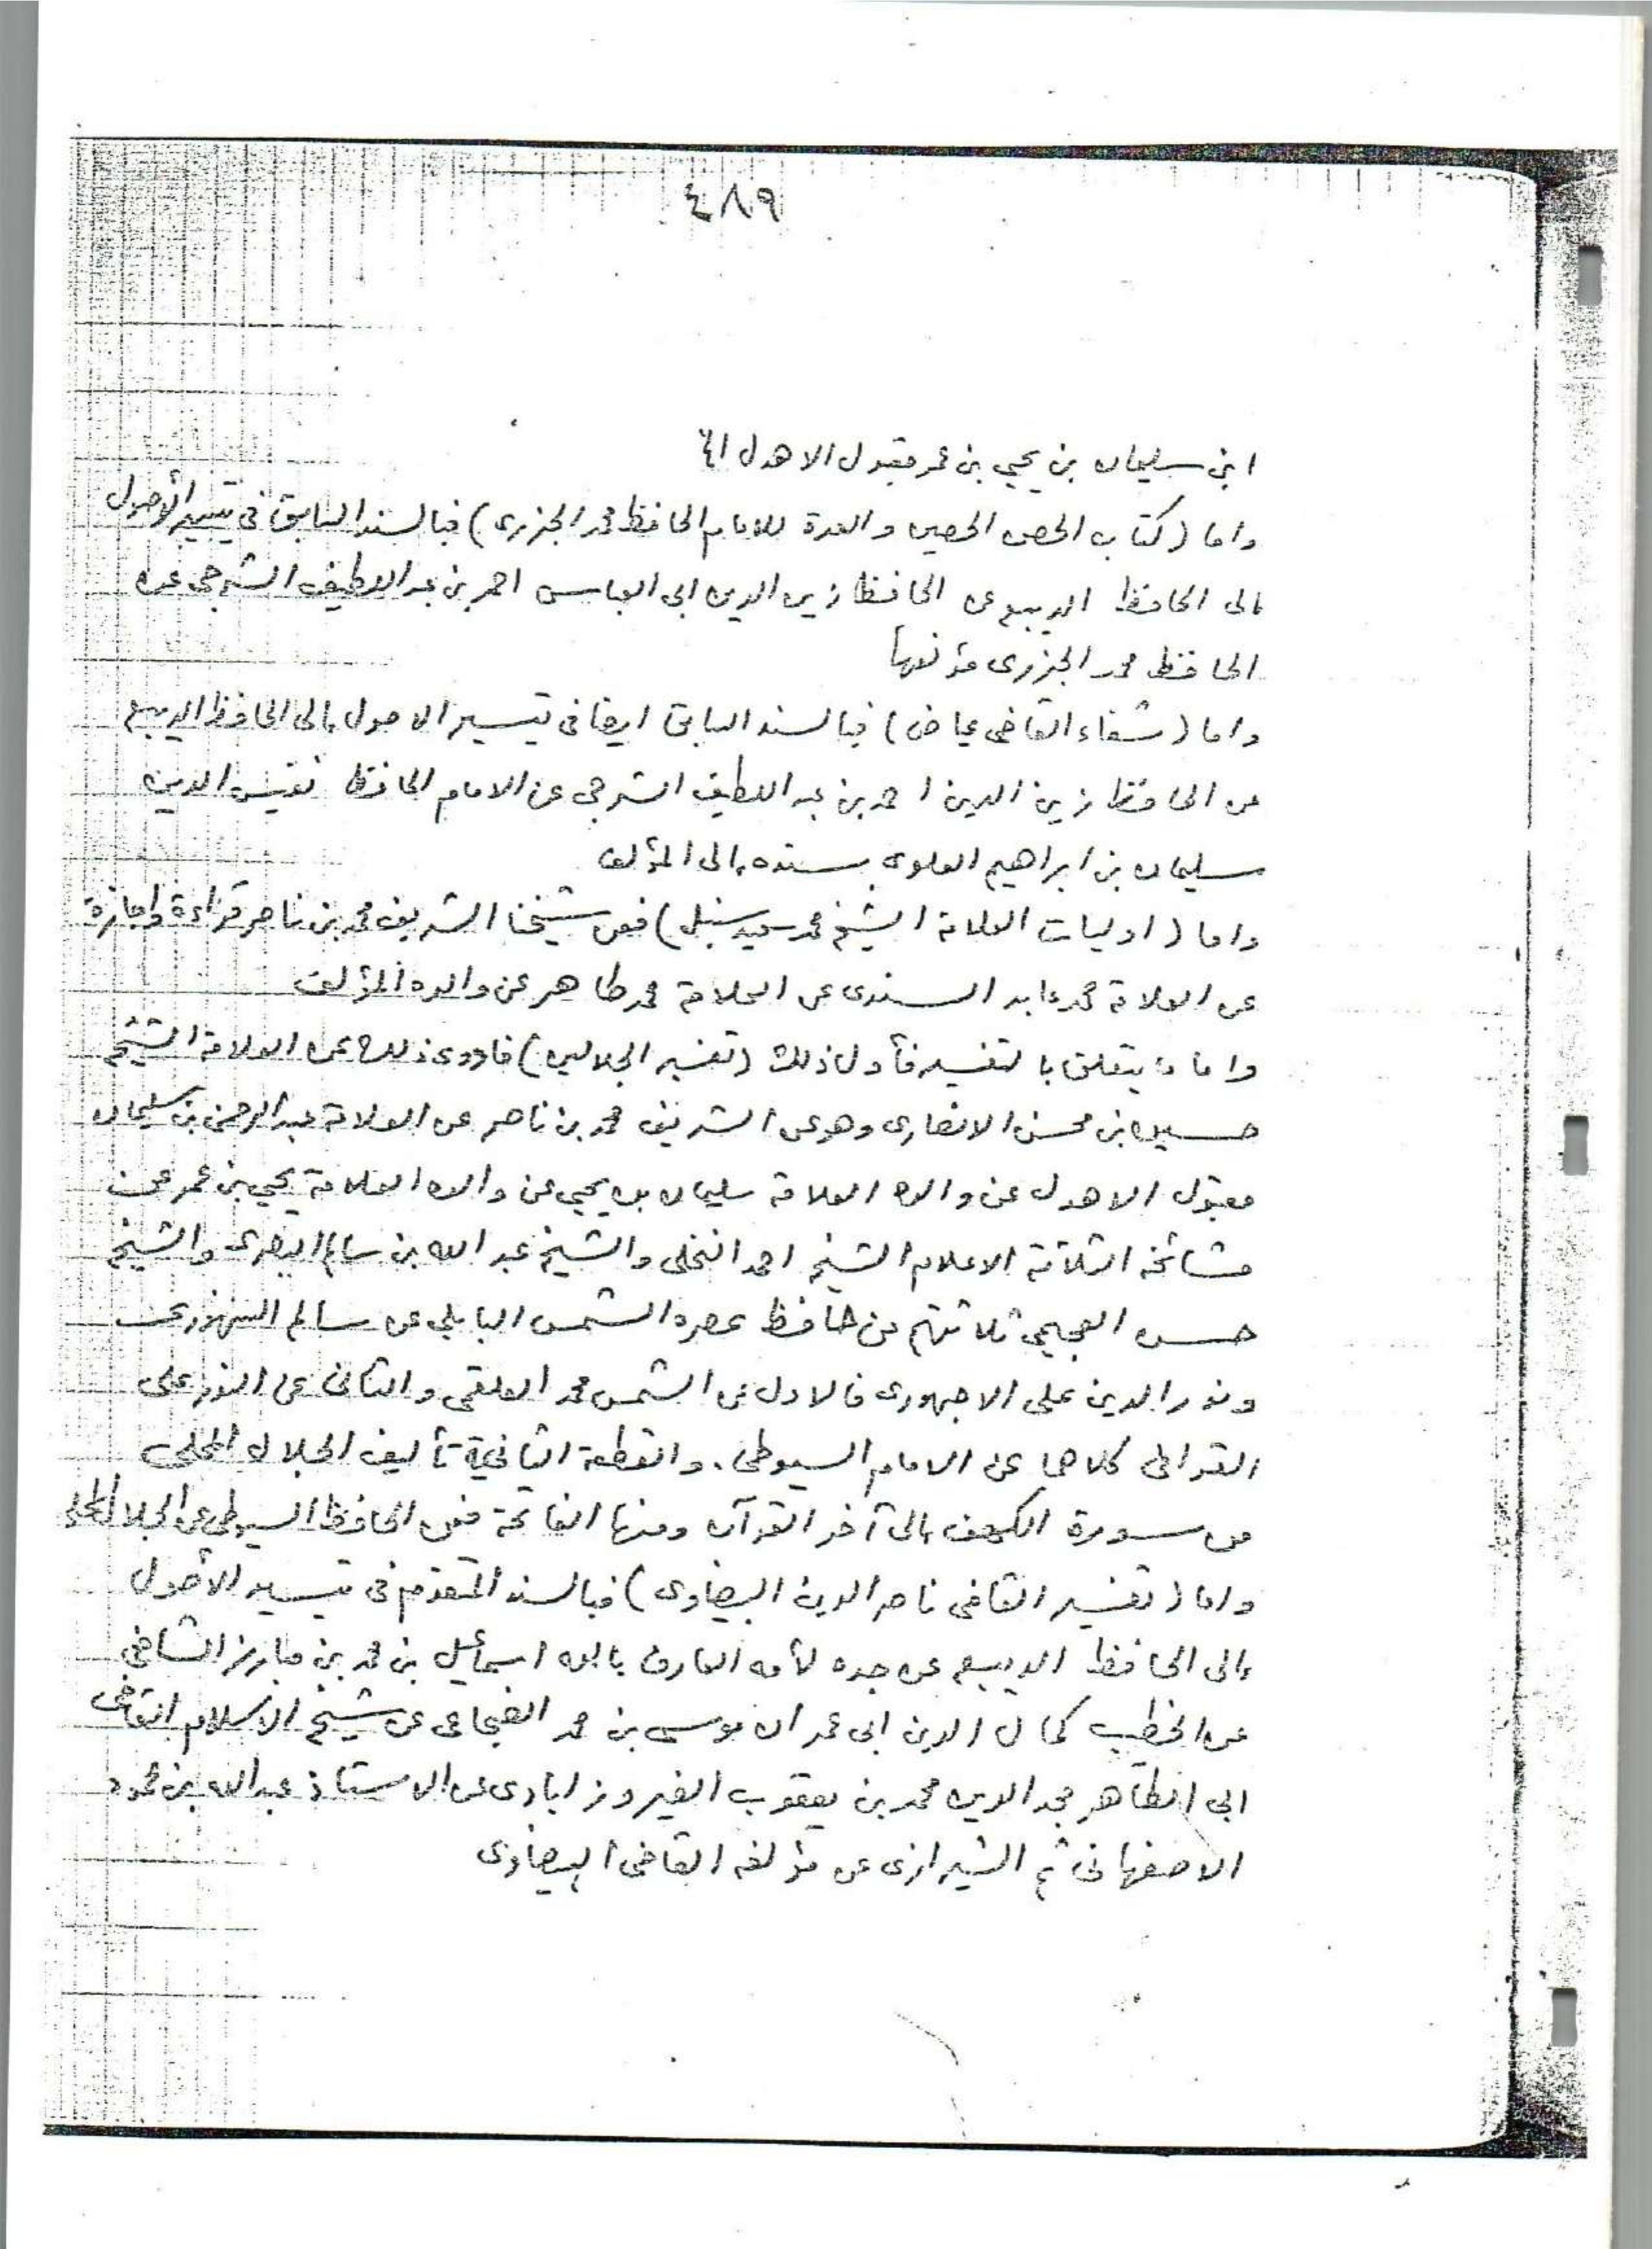 ٤٨٩
ابن سليمان بن يحيى بن عمر مقبول الاهدل اﻫ
واما (كتاب الحصن الحصين والعدة للامام الحافظ محمد الجزرى) فبالسند السابق فى تيسير الأصول
إلى الحافظ الديبع عن الحافظ زين الدين ابى العباس احمد بن عبد اللطيف الشرجى عن
الحافظ محمد الجزرى مؤلفها
واما (شفاء القاضى عياض) فبالسند السابق ايضا فى تيسير الاصول إلى الحافظ الديبع
عن الحافظ زين الدين احمد بن عبد اللطيف الشرجى عن الامام الحافظ نفيس الدين
سليمان بن ابراهيم العلوى بسنده إلى المؤلف
واما (اوليات العلامة الشيخ محمد سعيد سنبل) فعن شيخنا الشريف محمد بن ناصر قراءة واجازة
عن العلامة محمد عابد السندى عن العلامة محمد طاهر عن والده المؤلف
واما ما يتعلق بالتفسير فأول ذلك (تفسير الجلالين) فاروى ذلك عن العلامة الشيخ
حسين بن محسن الانصارى وهو عن الشريف محمد بن ناصر عن العلامة عبد الرحمن بن سليمان
مقبول الاهدل عن والده العلامة سليمان بن يحيى عن والده العلامة يحيى بن عمر عن
مشائخه الثلاثة الاعلام الشيخ احمد النخلى والشيخ عبد الله بن سالم البصرى والشيخ
حسن العجيمى ثلاثتهم عن حافظ عصره الشمس البابلى عن سالم السنهورى
ونور الدين على الاجهورى فالاول عن الشمس محمد العلقمى والثانى عن النور على
القرافى كلاهما عن الامام السيوطى. والقطعة الثانية تأليف الجلال المحلى
من سورة الكهف إلى آخر القرآن ومنها الفاتحة فعن الحافظ السيوطى عن الجلال المحلى
واما (تفسير القاضى ناصر الدين البيضاوى) فبالسند المتقدم فى تيسير الأصول
إلى الحافظ الديبع عن جده لأمه العارف بالله اسماعيل بن محمد بن مبارز الشافعى
عن الخطيب كمال الدين ابى عمران موسى بن محمد الضجاعى عن شيخ الاسلام القاضى
ابى الطاهر مجد الدين محمد بن يعقوب الفيروزابادى عن الاستاذ عبد الله بن محمود
الاصفهانى ثم الشيرازى عن مؤلفه القاضى البيضاوى